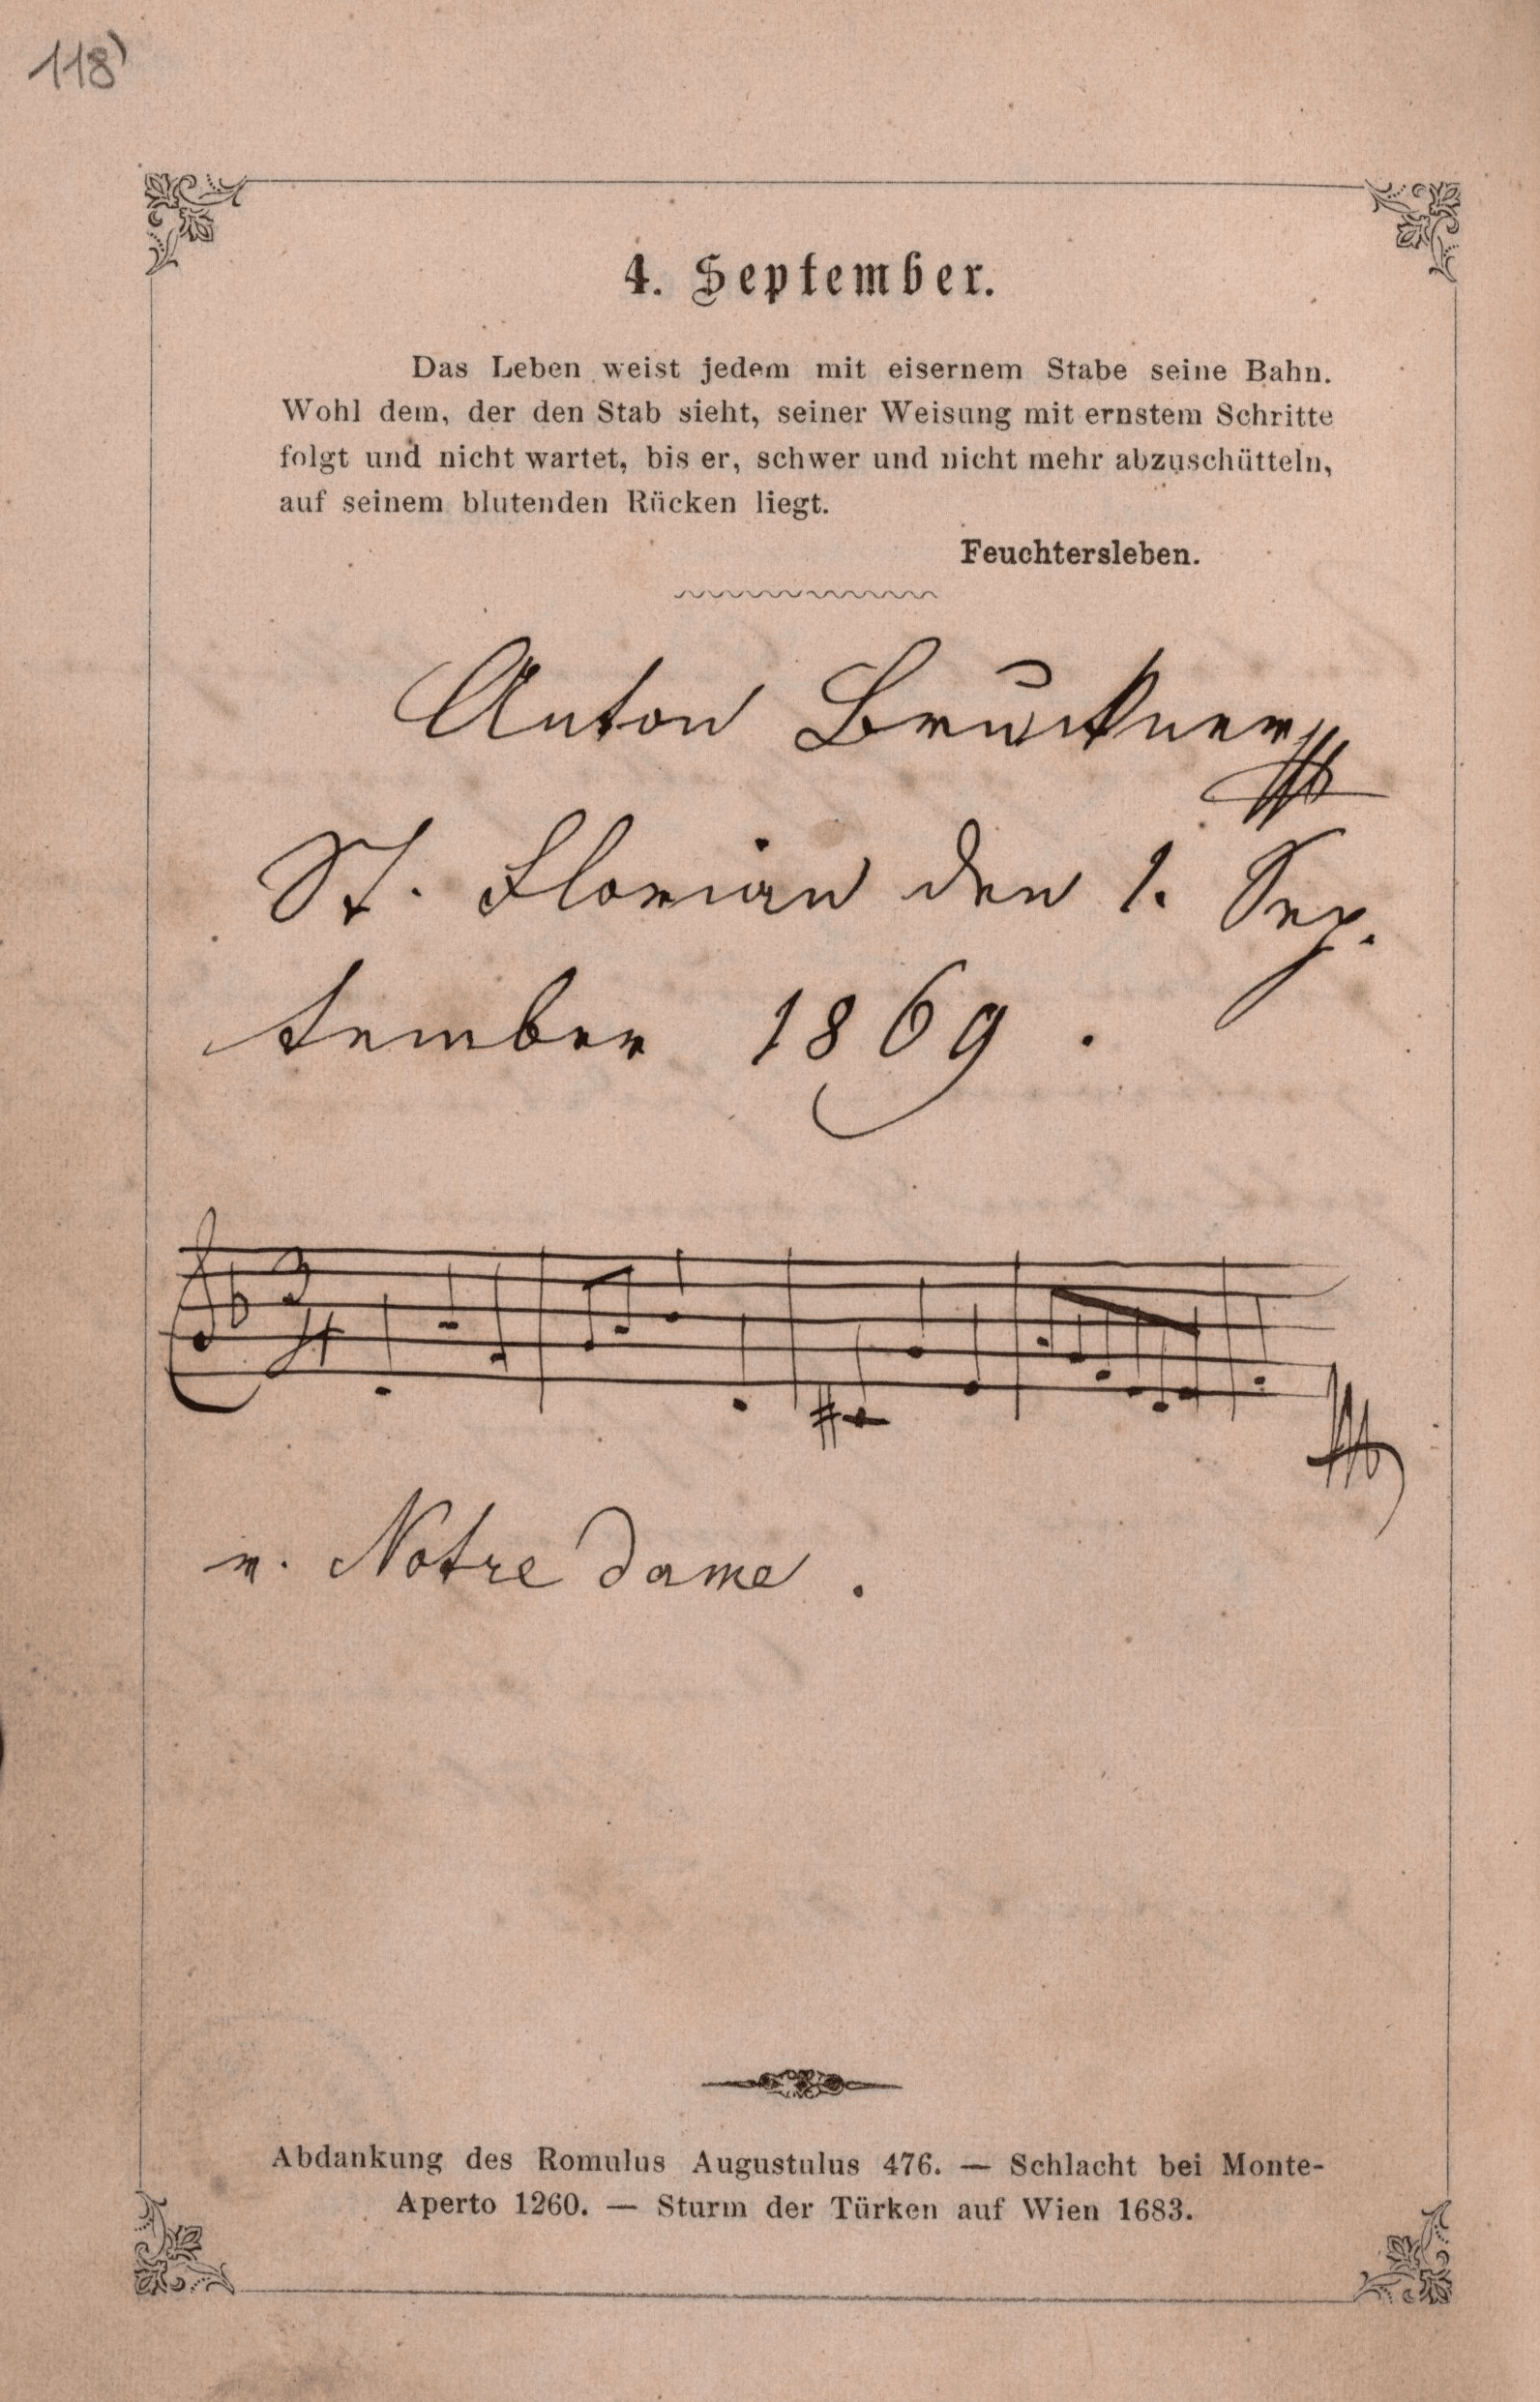 118)
4. September.
Das Leben weist jedem mit eisernem Stabe seine Bahn.
Wohl dem, der den Stab sieht, seiner Weisung mit ernstem Schritte
folgt und nicht wartet, bis er, schwer und nicht mehr abzuschütteln,
auf seinem blutenden Rücken liegt.
Feuchtersleben.
Anton Bruckner
St. Florian den 1. Sep.
tember 1869.
3
4
v. Notre dame.
Abdankung des Romulus Augustulus 476. — Schlacht bei Monte-
Aperto 1260. — Sturm der Türken auf Wien 1683.